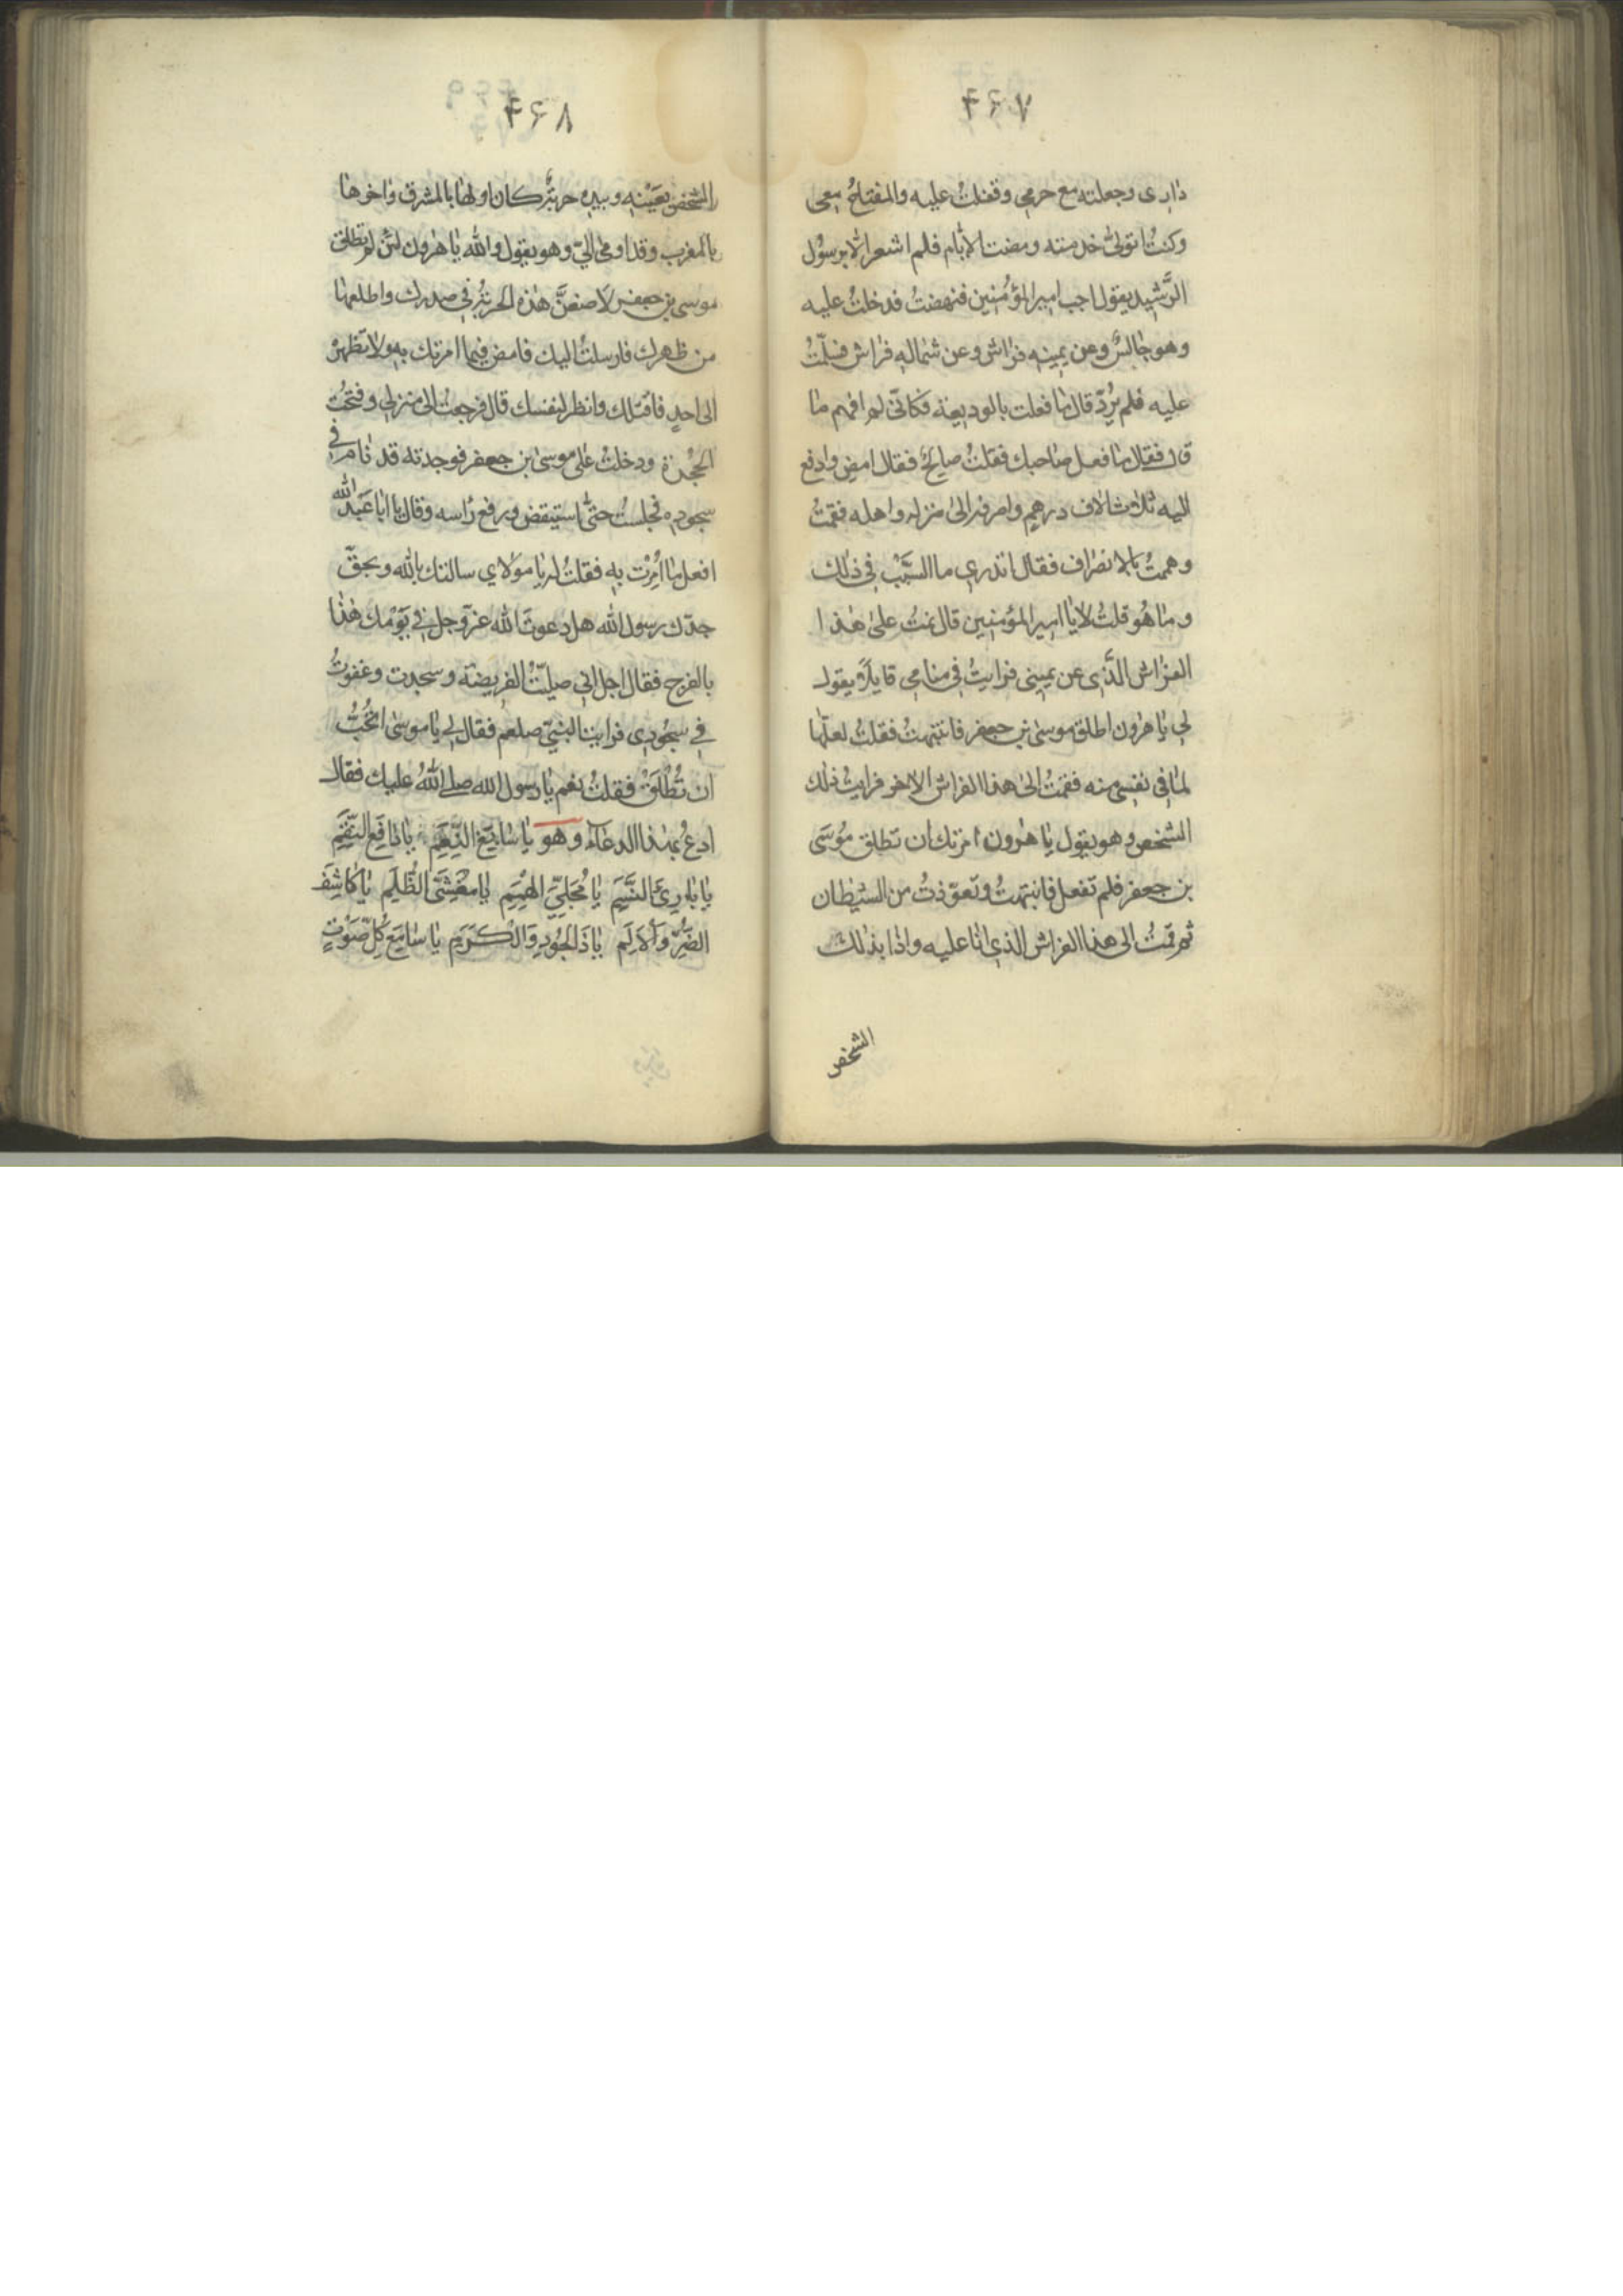 ۴۶۷
داری وجعلته مع حرمی وقفلتُ علیه والمفتاحُ معی
وکنتُ اتولیّٰ خدمته ومضت الایّام فلم اشعر الّا برسُول
الرَّشید یقول اجب امیر المؤمنین فنهضتُ فدخلتُ علیه
وهو جالسٌ وعن یمینه فراش وعن شماله فراش فسلّمتُ
علیه فلم یردّ قال ما فعلت بالودیعة فکانّی لم افهم ما
قال فقال ما فعل صاحبك فقلتُ صالحٌ فقال امض وادفع
الیه ثلاث الاف درهم واصرفه الیٰ منزله واهله فقمتُ
وهممتُ بالانصراف فقال اتدری ما السَّبَبُ فی ذٰلك
وما هُو قلتُ لا یا امیر المؤمنین قال نمتُ علیٰ هٰذا
الفراش الّذی عن یمینی فرایتُ فی منامی قایلاً یقول
لی یا هٰرون اطلق موسیٰ بن جعفر فانتبهتُ فقلتُ لعلّها
لما فی نفسی منه فقمتُ الیٰ هذا الفراش الاخر فرایتُ ذلك
الشخص وهو یقول یا هٰرون امرتك ان تطلق مُوسَی
بن جعفر فلم تفعل فانتبهتُ وتعوّذتُ من الشیطان
ثم قمتُ الی هذا الفراش الذی انا علیه واذا بذٰلك
الشخص
۴۶۸
الشخص بعَیْنِه وبیده حربةٌ کان اولها بالمشرق واخرها
بالمغرب وقد اومیٰ الیّ وهو یقول والله یا هٰرون لئن لم تطلق
موسی بن جعفر لاضعنَّ هٰذه الحربة فی صدرك واطلعها
من ظهرك فارسلتُ الیك فامض فیما امرتك به ولا تظهرهُ
الی احدٍ فاقتلك وانظر لنفسك قال فرجعتُ الیٰ منزلی وفتحتُ
الحُجْرة ودخلتُ علی موسیٰ بن جعفر فوجدته قد نام فی
سجوده فجلستُ حتّٰی استیقض ورفع رأسه وقال یا ابا عَبد الله
افعل ما اُمِرْت به فقلتُ له یا مولای سالتك بالله وبحقّ
جدّك رسول الله هل دعوتَ الله عزّوجل فی یَوْمك هٰذا
بالفرج فقال اجل انی صلّیتُ الفریضة وسجدت وغفوتُ
فی سجُودی فرایتُ النبیّ صلعم فقال لی یا موسیٰ اتحُبُّ
ان تُطْلَقْ فقلتُ نعم یا رسول الله صلی اللهُ علیك فقال
ادعُ بهٰذا الدعاء وهو یا سَابِغَ النِّعَمِ یا دَافِعَ النِّقَمِ
یا بارِیَٔ النَّسَمِ یا مُجَلِّیَ الهِمَمِ یا مُغْشِیَ الظُّلَمِ یا کاشِفَ
الضُرِّ وَالاَلَمِ یا ذَا الجُودِ وَالْکَرَمِ یا سَامِعَ کُلِّ صَوْتٍ